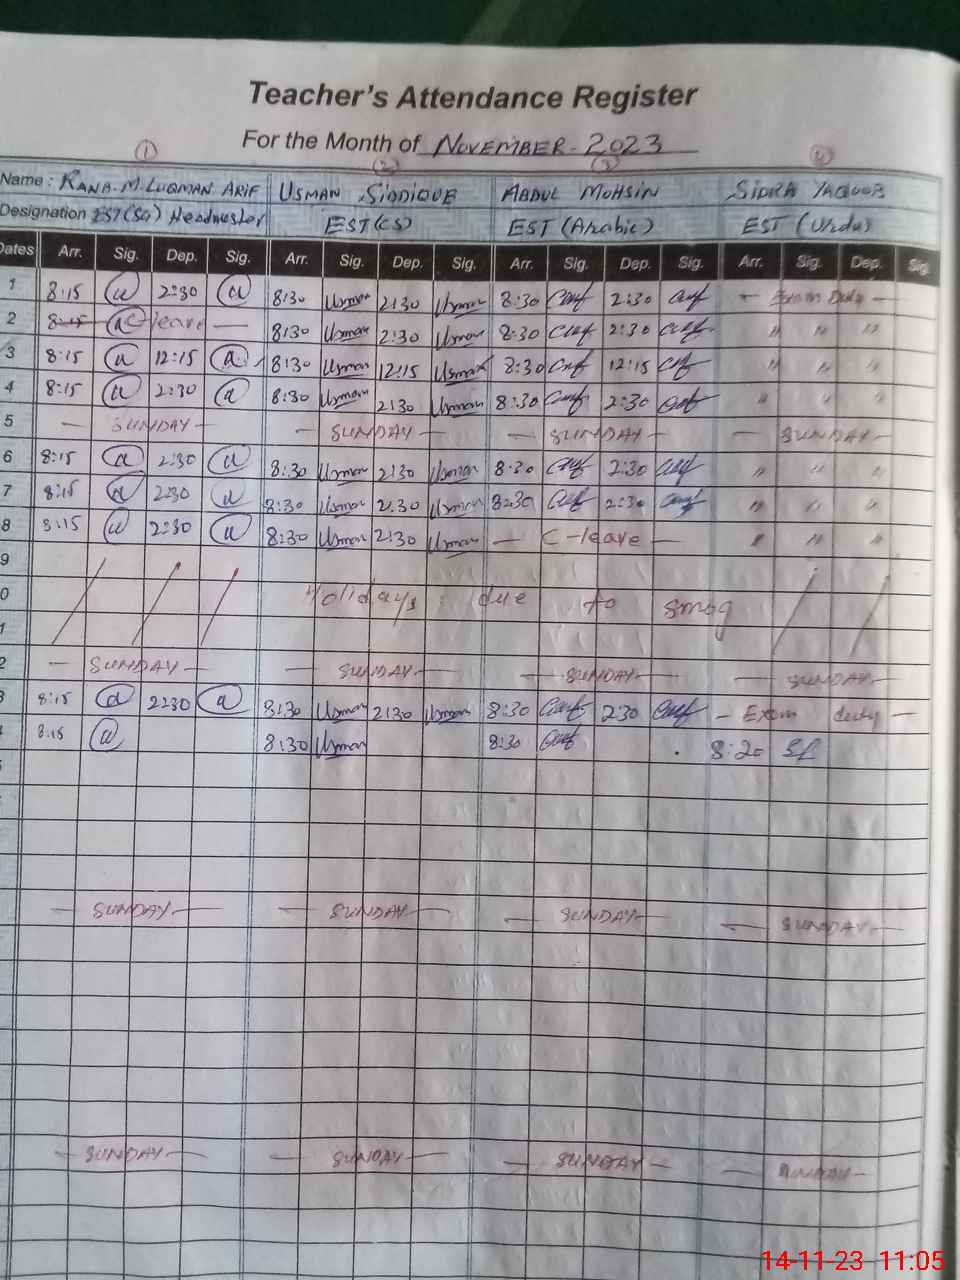 Teacher's Attendance Register
For the Month of NOVEMBER - 2023
① ② ③ ④
Name : RANA. M. LUQMAN ARIF USMAN SIDDIQUE ABDUL MOHSIN SIDRA YAQOOB
Designation EST(SG) Headmaster EST(CS) EST (Arabic) EST (Urdu)
Dates Arr. Sig. Dep. Sig. Arr. Sig. Dep. Sig. Arr. Sig. Dep. Sig. Arr. Sig. Dep. Sig.
1 8:15 2:30 8:30 Usman 2:30 Usman 8:30 2:30 - Exam Duty -
2 8:15 C-leave - 8:30 Usman 2:30 Usman 8:30 2:30 " " "
3 8:15 12:15 8:30 Usman 12:15 Usman 8:30 12:15 " " "
4 8:15 2:30 8:30 Usman 2:30 Usman 8:30 2:30 " " "
5 - SUNDAY - - SUNDAY - - SUNDAY - - SUNDAY -
6 8:15 2:30 8:30 Usman 2:30 Usman 8:30 2:30 " " "
7 8:15 2:30 8:30 Usman 2:30 Usman 8:30 2:30 " " "
8 8:15 2:30 8:30 Usman 2:30 Usman - C-leave - " " "
9
0 Holidays due to smog
1
2 - SUNDAY - - SUNDAY - - SUNDAY - - SUNDAY -
3 8:15 2:30 8:30 Usman 2:30 Usman 8:30 2:30 - Exam duty -
4 8:15 8:30 Usman 8:30 8:20
- SUNDAY - - SUNDAY - - SUNDAY - - SUNDAY -
- SUNDAY - - SUNDAY - - SUNDAY - - SUNDAY -
14-11-23 11:05